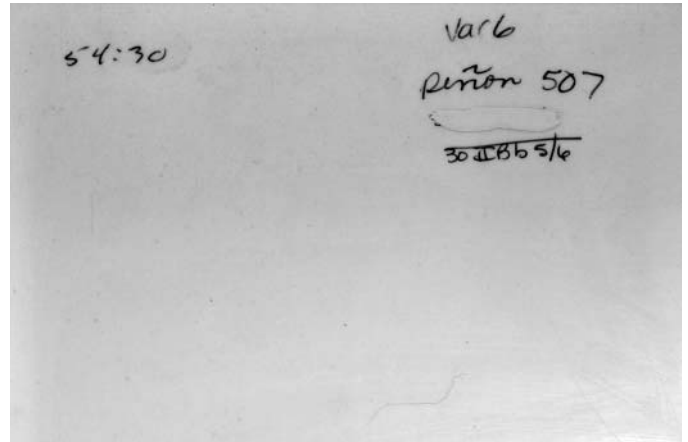 54:30
Var 6
Piñon 507
30 II Bb 5/6